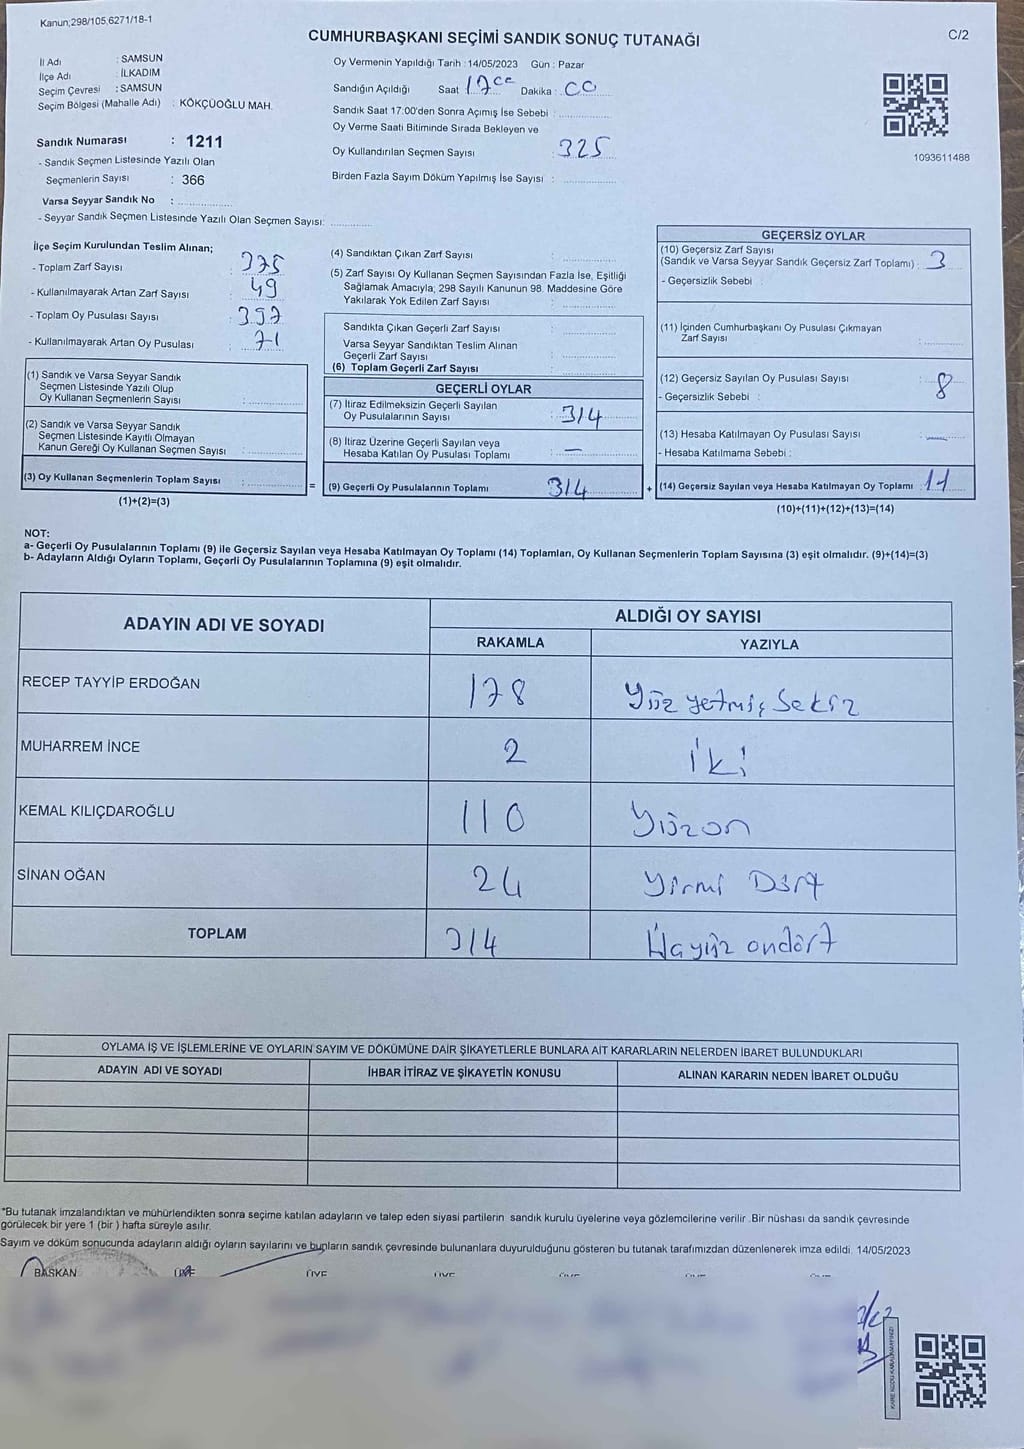 Kanun;298/105,6271/18-1
CUMHURBAŞKANI SEÇİMİ SANDIK SONUÇ TUTANAĞI
C/2
İl Adı : SAMSUN
İlçe Adı : İLKADIM
Seçim Çevresi : SAMSUN
Seçim Bölgesi (Mahalle Adı) : KÖKÇÜOĞLU MAH.
Sandık Numarası : 1211
- Sandık Seçmen Listesinde Yazılı Olan
Seçmenlerin Sayısı : 366
Varsa Seyyar Sandık No :
- Seyyar Sandık Seçmen Listesinde Yazılı Olan Seçmen Sayısı:
Oy Vermenin Yapıldığı Tarih : 14/05/2023 Gün : Pazar
Sandığın Açıldığı Saat 17 Dakika :
Sandık Saat 17:00'den Sonra Açımış İse Sebebi :
Oy Verme Saati Bitiminde Sırada Bekleyen ve
Oy Kullandırılan Seçmen Sayısı : 325
Birden Fazla Sayım Döküm Yapılmış İse Sayısı :
1093611488
İlçe Seçim Kurulundan Teslim Alınan;
- Toplam Zarf Sayısı : 375
- Kullanılmayarak Artan Zarf Sayısı : 49
- Toplam Oy Pusulası Sayısı : 397
- Kullanılmayarak Artan Oy Pusulası : 71
(1) Sandık ve Varsa Seyyar Sandık
Seçmen Listesinde Yazılı Olup
Oy Kullanan Seçmenlerin Sayısı :
(2) Sandık ve Varsa Seyyar Sandık
Seçmen Listesinde Kayıtlı Olmayan
Kanun Gereği Oy Kullanan Seçmen Sayısı :
(3) Oy Kullanan Seçmenlerin Toplam Sayısı :
(1)+(2)=(3)
(4) Sandıktan Çıkan Zarf Sayısı :
(5) Zarf Sayısı Oy Kullanan Seçmen Sayısından Fazla İse, Eşitliği
Sağlamak Amacıyla; 298 Sayılı Kanunun 98. Maddesine Göre
Yakılarak Yok Edilen Zarf Sayısı :
Sandıkta Çıkan Geçerli Zarf Sayısı :
Varsa Seyyar Sandıktan Teslim Alınan
Geçerli Zarf Sayısı :
(6) Toplam Geçerli Zarf Sayısı :
GEÇERLİ OYLAR
(7) İtiraz Edilmeksizin Geçerli Sayılan
Oy Pusulalarının Sayısı : 314
(8) İtiraz Üzerine Geçerli Sayılan veya
Hesaba Katılan Oy Pusulası Toplamı : —
= (9) Geçerli Oy Pusulalarının Toplamı 314
GEÇERSİZ OYLAR
(10) Geçersiz Zarf Sayısı
(Sandık ve Varsa Seyyar Sandık Geçersiz Zarf Toplamı) : 3
- Geçersizlik Sebebi :
(11) İçinden Cumhurbaşkanı Oy Pusulası Çıkmayan
Zarf Sayısı :
(12) Geçersiz Sayılan Oy Pusulası Sayısı : 8
- Geçersizlik Sebebi :
(13) Hesaba Katılmayan Oy Pusulası Sayısı : —
- Hesaba Katılmama Sebebi :
+ (14) Geçersiz Sayılan veya Hesaba Katılmayan Oy Toplamı : 11
(10)+(11)+(12)+(13)=(14)
NOT:
a- Geçerli Oy Pusulalarının Toplamı (9) ile Geçersiz Sayılan veya Hesaba Katılmayan Oy Toplamı (14) Toplamları, Oy Kullanan Seçmenlerin Toplam Sayısına (3) eşit olmalıdır. (9)+(14)=(3)
b- Adayların Aldığı Oyların Toplamı, Geçerli Oy Pusulalarının Toplamına (9) eşit olmalıdır.
ADAYIN ADI VE SOYADI
ALDIĞI OY SAYISI
RAKAMLA YAZIYLA
RECEP TAYYİP ERDOĞAN 178 Yüz yetmiş Sekiz
MUHARREM İNCE 2 İki
KEMAL KILIÇDAROĞLU 110 Yüzon
SİNAN OĞAN 24 Yirmi Dört
TOPLAM 314 ondört
OYLAMA İŞ VE İŞLEMLERİNE VE OYLARIN SAYIM VE DÖKÜMÜNE DAİR ŞİKAYETLERLE BUNLARA AİT KARARLARIN NELERDEN İBARET BULUNDUKLARI
ADAYIN ADI VE SOYADI İHBAR İTİRAZ VE ŞİKAYETİN KONUSU ALINAN KARARIN NEDEN İBARET OLDUĞU
*Bu tutanak imzalandıktan ve mühürlendikten sonra seçime katılan adayların ve talep eden siyasi partilerin sandık kurulu üyelerine veya gözlemcilerine verilir .Bir nüshası da sandık çevresinde
görülecek bir yere 1 (bir ) hafta süreyle asılır.
Sayım ve döküm sonucunda adayların aldığı oyların sayılarını ve bunların sandık çevresinde bulunanlara duyurulduğunu gösteren bu tutanak tarafımızdan düzenlenerek imza edildi. 14/05/2023
BAŞKAN ÜYE ÜYE ÜYE